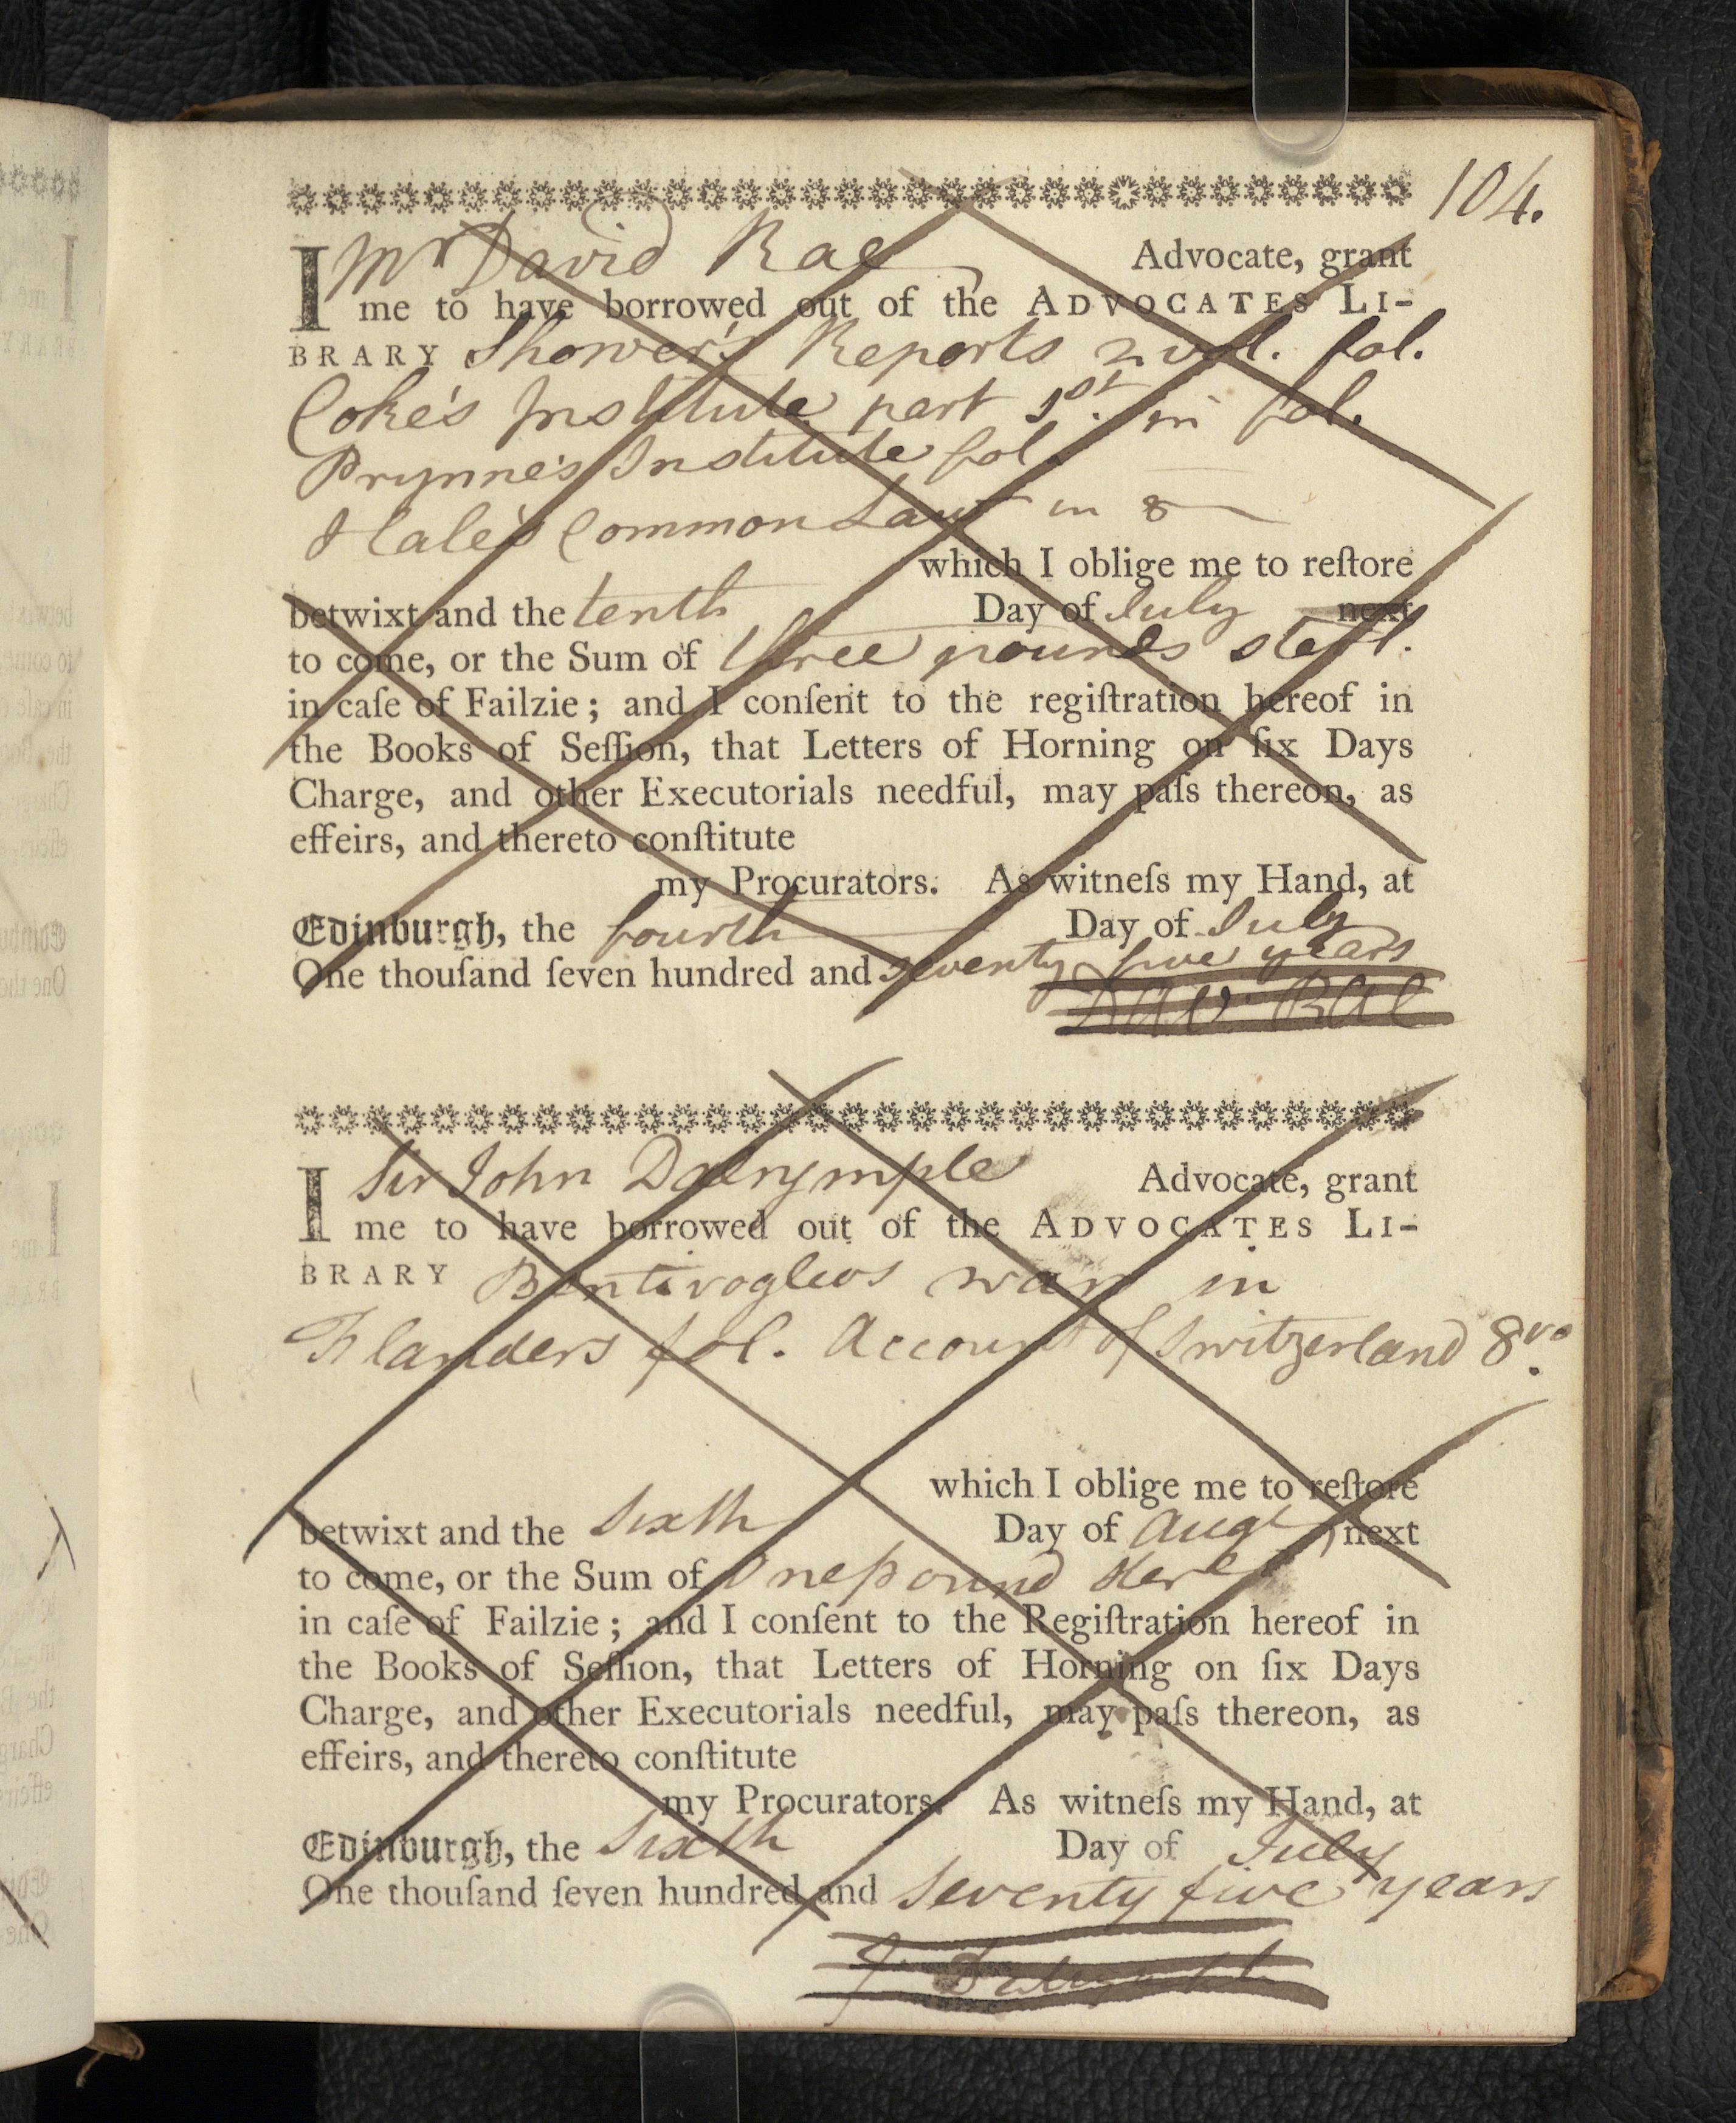 104.
I Mr David Rae Advocate, grant
me to have borrowed out of the ADVOCATES LI-
BRARY Shower's Reports 2 vol. fol.
Coke's Institute part 1st. in fol.
Prynne's Institute fol.
Hale's Common Law in 8
which I oblige me to reſtore
betwixt and the tenth Day of July next
to come, or the Sum of three pounds sterl.
in caſe of Failzie; and I conſent to the regiſtration hereof in
the Books of Seſſion, that Letters of Horning on ſix Days
Charge, and other Executorials needful, may paſs thereon, as
effeirs, and thereto conſtitute
my Procurators. As witneſs my Hand, at
Edinburgh, the fourth Day of July
One thouſand ſeven hundred and seventy five years
Dav. Rae
I Sir John Dalrymple Advocate, grant
me to have borrowed out of the ADVOCATES LI-
BRARY Bentivoglios war in
Flanders fol. Account of Switzerland 8vo.
which I oblige me to reſtore
betwixt and the Sixth Day of Augt next
to come, or the Sum of One pound
in caſe of Failzie; and I conſent to the Regiſtration hereof in
the Books of Seſſion, that Letters of Horning on ſix Days
Charge, and other Executorials needful, may paſs thereon, as
effeirs, and thereto conſtitute
my Procurators. As witneſs my Hand, at
Edinburgh, the Sixth Day of July
One thouſand ſeven hundred and Seventy five years